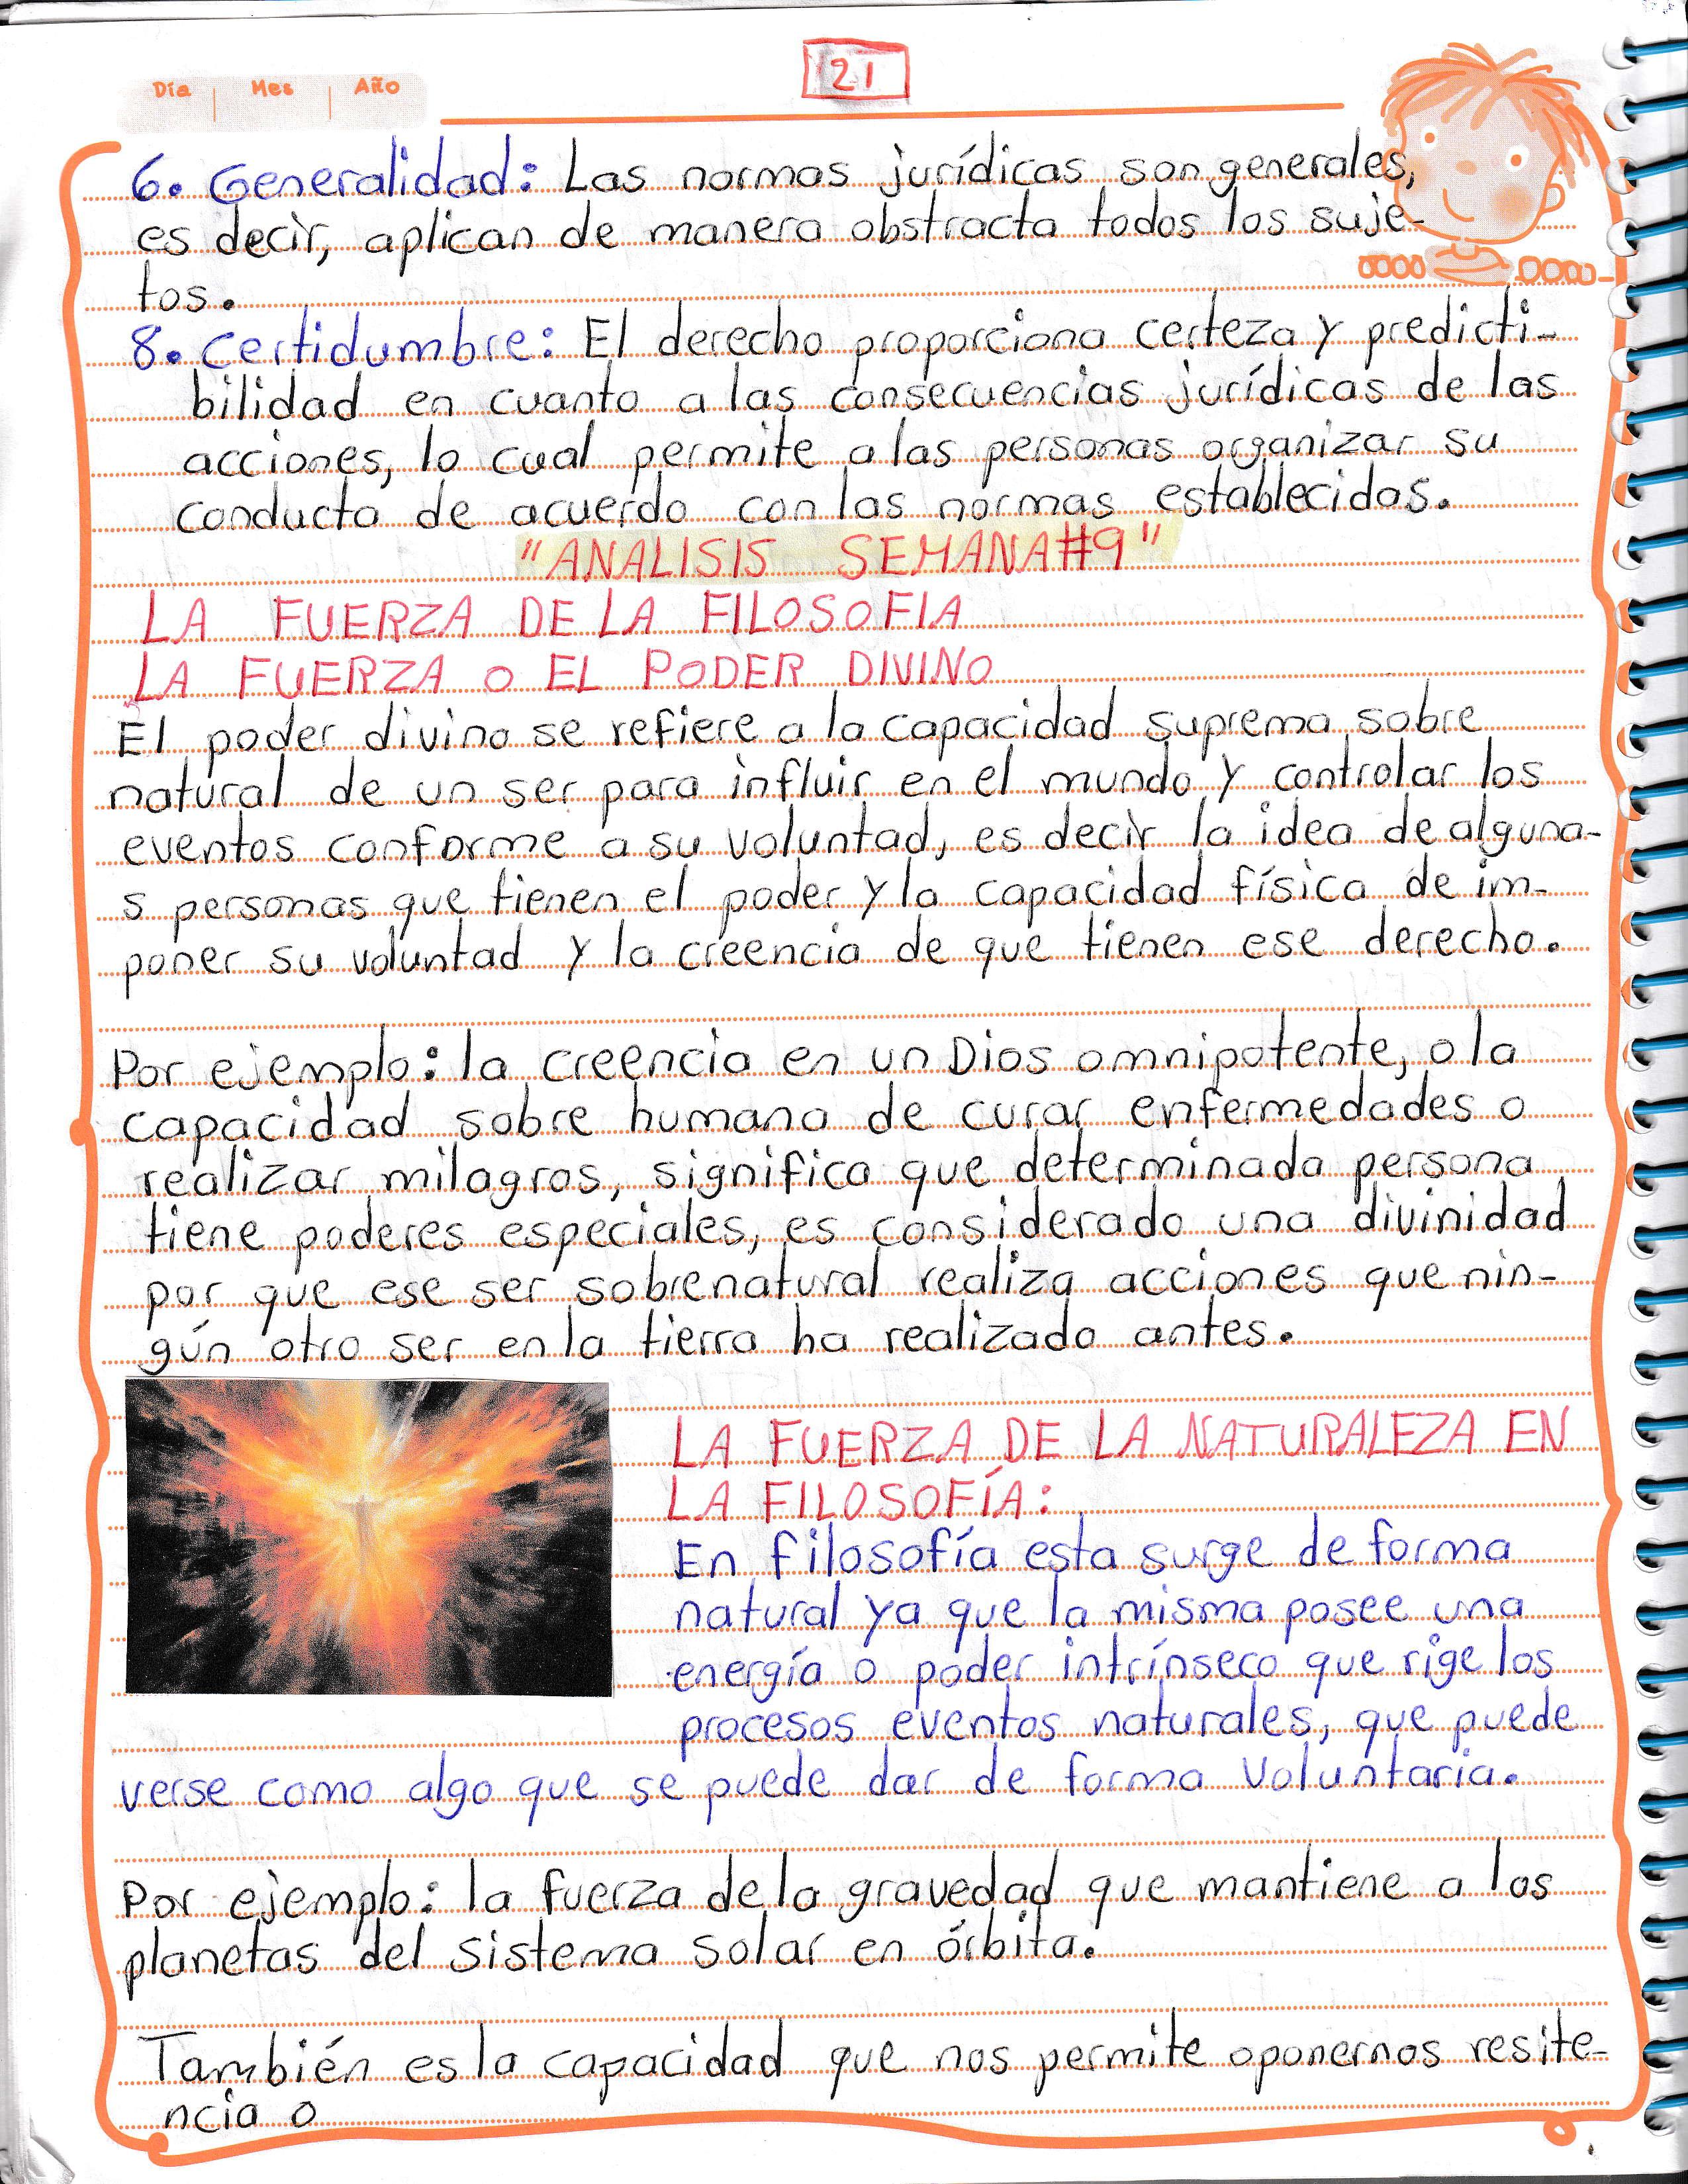 21
Día Mes Año
6. Generalidad: Las normas jurídicas son generales,
es decir, aplican de manera abstracta todos los suje-
tos.
8. Certidumbre: El derecho proporciona certeza y predicti-
bilidad en cuanto a las consecuencias jurídicas de las
acciones, lo cual permite a las personas organizar su
conducta de acuerdo con las normas establecidas.
"ANALISIS SEMANA#9"
LA FUERZA DE LA FILOSOFIA
LA FUERZA O EL PODER DIVINO
El poder divino se refiere a la capacidad suprema sobre
natural de un ser para influir en el mundo y controlar los
eventos conforme a su voluntad, es decir la idea de alguna-
s personas que tienen el poder y la capacidad física de im-
poner su voluntad y la creencia de que tienen ese derecho.
Por ejemplo: la creencia en un Dios omnipotente, o la
capacidad sobre humana de curar enfermedades o
realizar milagros, significa que determinada persona
tiene poderes especiales, es considerado una divinidad
por que ese ser sobrenatural realiza acciones que nin-
gún otro ser en la tierra ha realizado antes.
LA FUERZA DE LA NATURALEZA EN
LA FILOSOFÍA:
En filosofía esta surge de forma
natural ya que la misma posee una
energía o poder intrínseco que rige los
procesos eventos naturales, que puede
verse como algo que se puede dar de forma voluntaria.
Por ejemplo: la fuerza de la gravedad que mantiene a los
planetas del sistema solar en órbita.
También es la capacidad que nos permite oponernos resite-
ncia o